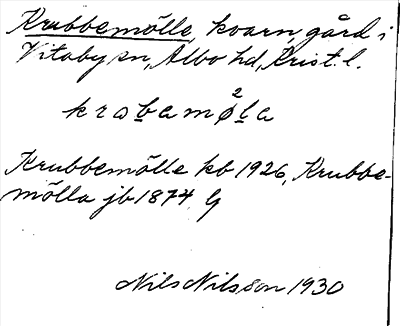 Krubbemölle, kvarn, gård i
Vitaby sn, Albo hd, Krist. l.
krabamø²la
Krubbemölle kb 1926, Krubbe-
mölla jb 1874
Nils Nilsson 1930